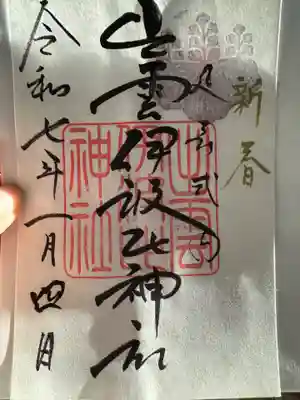 新春
延喜式内
出雲伊波比神社
令和七年一月四日
出雲
伊波比
神社